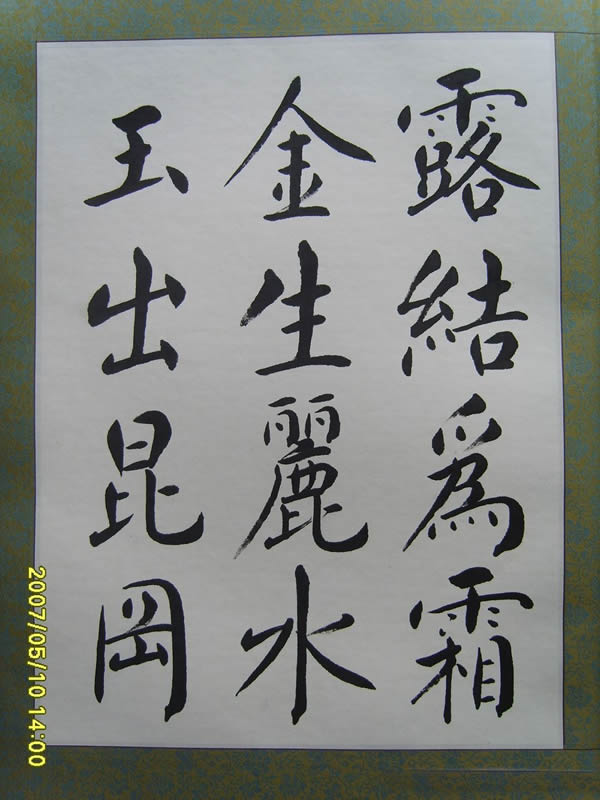 露結爲霜
金生麗水
玉出昆岡
2007/05/10 14:00